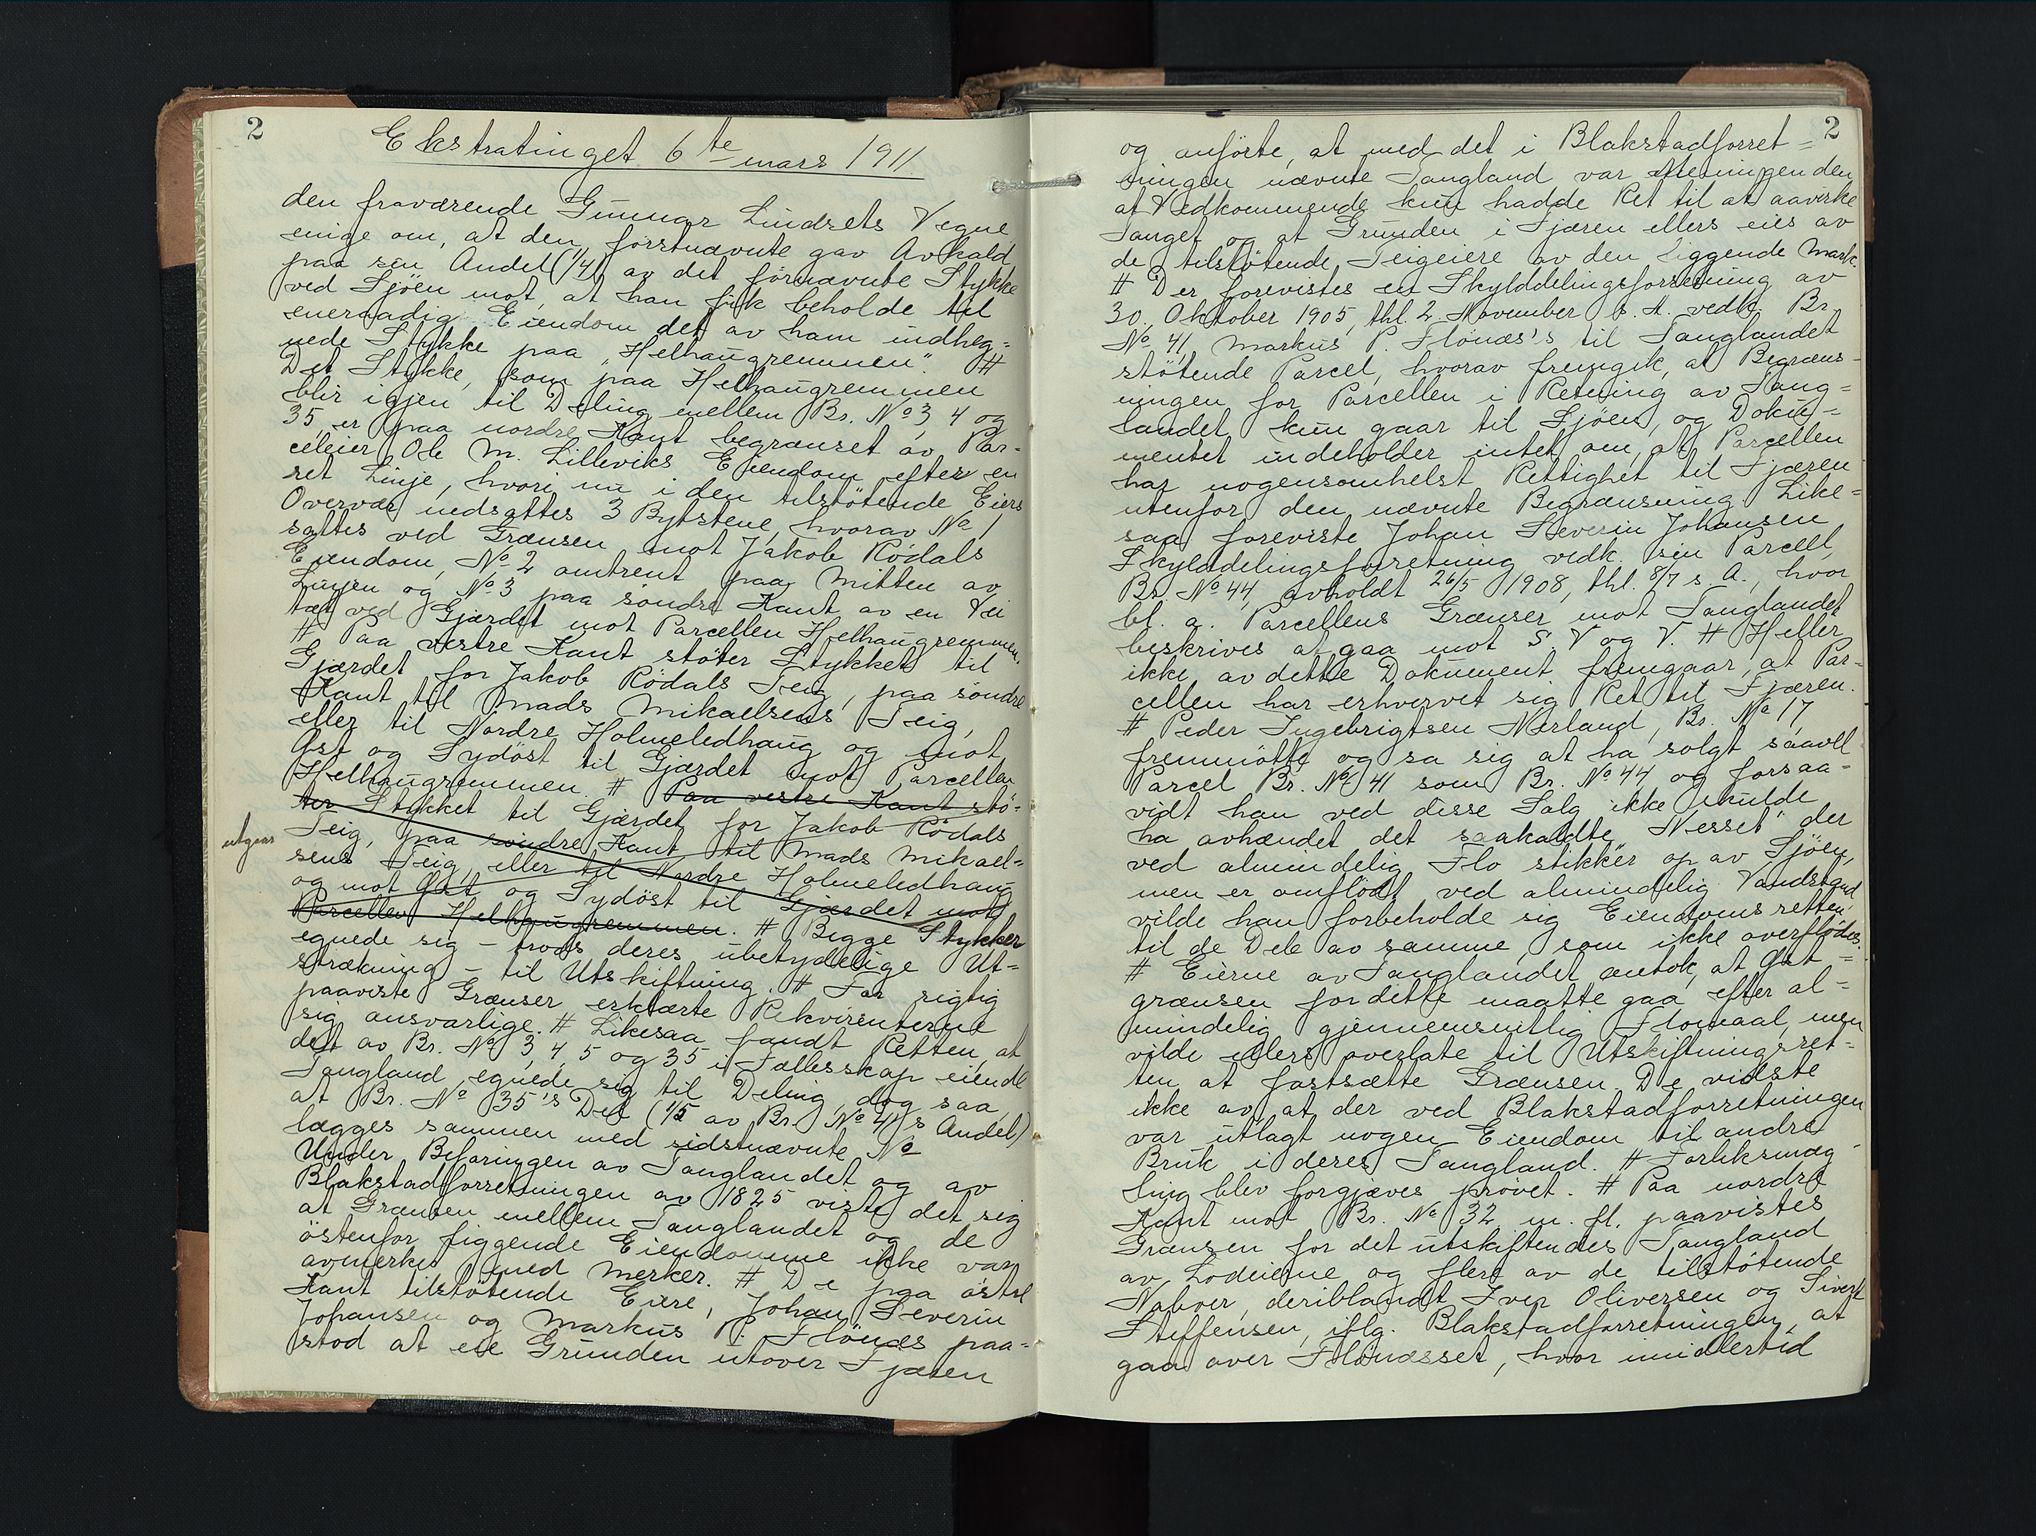 2
Ekstratinget 6te mars 1911.
den fraværende Gunnar Lindsets Vegne
enige om, at den førstnævnte gav Avkald
paa sin Andel (1/4) av det førnævnte Stykke
ved Sjøen mot, at han fik beholde til
eneraadig Eiendom det av ham indheg=
nede Stykke paa "Helhaugremmen". #
Det Stykke, som paa Helhaugremmen
blir igjen til Deling mellem Br. No 3, 4 og
35, er paa nordre Kant begrænset av Par-
celeier Ole M. Lilleviks Eiendom efter en
ret Linje, hvori nu i den tilstøtende Eiers
Overvær nedsattes 3 Bytstene, hvorav No 1
sattes ved Grænsen mot Jakob Rødals
Eiendom, No 2 omtrent paa Mitten av
Linjen og No 3 paa søndre Kant av en Vei
tæt ved Gjærdet mot Parcellen Helhaugremmen.
# Paa vestre Kant støter Stykket til
Gjærdet for Jakob Rødals Teig, paa søndre
Kant til Mads Mikaelsens Teig,
eller til Nordre Holmeledhaug og mot
Øst og Sydøst til Gjærdet mot Parcellen
Helhaugremmen. # Paa vestre Kant stø-
ter Stykket til Gjærdet for Jakob Rødals
utgaar
Teig, paa søndre Kant til Mads Mikael-
sens Teig, eller til Nordre Holmeledhaug
og mot Øst og Sydøst til Gjærdet mot
Parcellen Helhaugremmen. # Begge Stykker
egnede sig – trods deres ubetydelige Ut=
strækning – til Utskiftning. # For rigtig
paaviste Grænser erklærte Rekvirenterne
sig ansvarlige. # Likesaa fandt Retten, at
det av Br. No 3, 4, 5 og 35 i Fællesskap eiende
Tangland egnede sig til Deling, dog saa,
at Br. No 35's Del (1/5 av Br. No 4's Andel)
lægges sammen med sidstnævnte No
Under Befaringen av Tanglandet og av
Blakstadforretningen av 1825 viste det sig
at Grænsen mellem Tanglandet og de
østenfor liggende Eiendomme ikke var
avmerket med Merker. # De paa østre
Kant tilstøtende Eiere, Johan Severin
Johansen og Markus P. Flønæs paa-
stod at eie Grunden utover Fjæren
2
og anførte, at med det i Blakstadforret=
ningen nævnte Tangland var Meningen den
at Vedkommende kun hadde Ret til at aavirke
Tanget og at Grunden i Fjæren ellers eies av
de tilstøtende Teigeiere av den liggende Mark.
# Der forevistes en Skylddelingsforretning av
30. Oktober 1905, thl. 2. November s. A. vedk. Br.
No 41, Markus P. Flønæs's til Tanglandet
støtende Parcel, hvorav fremgik, at Begræns-
ningen for Parcellen i Retning av Tang=
landet kun gaar til Sjøen, og Doku=
mentet indeholder intet om, at Parcellen
har nogensomhelst Rettighet til Fjæren
utenfor den nævnte Begrænsning. Like=
saa foreviste Johan Severin Johansen
Skylddelingsforretning vedk. sin Parcel,
Br. No 44, avholdt 26/5 1908, thl. 8/7 s. A., hvor
bl. a. Parcellens Grænser mot Tanglandet
beskrives at gaa mot S. V og V. # Heller
ikke av dette Dokument fremgaar, at Par-
cellen har erhvervet sig Ret til Fjæren.
# Peder Ingebrigtsen Nerland, Br. No 17,
fremmøtte og sa sig at ha solgt saavel
Parcel Br. No 41 som Br. No 44, og forsaa-
vidt han ved disse Salg ikke skulde
ha avhændet det saakaldte "Nesset", der
ved almindelig Flo stikker op av Sjøen,
men er omflødt ved almindelig Vandstand,
vilde han forbeholde sig Eiendomsretten
til de Dele av samme, som ikke overflødes.
# Eierne av Tanglandet antok, at Øst=
grænsen for dette maatte gaa efter al-
mindelig gjennemsnitlig Flomaal, men
vilde ellers overlate til Utskiftningsret=
ten at fastsætte Grænsen. De vidste
ikke av at der ved Blakstadforretningen
var utlagt nogen Eiendom til andre
Bruk i deres Tangland. # Forliksmæg-
ling blev forgjæves prøvet. # Paa nordre
Kant mot Br. No 32 m. fl. paavistes
Grænsen for det utskiftendes Tangland
av Lodeierne og flere av de tilstøtende
Naboer, deriblandt Iver Oliversen og Sivert
Steffensen, iflg. Blakstadforretningen, at
gaa over Flønæsset, hvor imidlertid